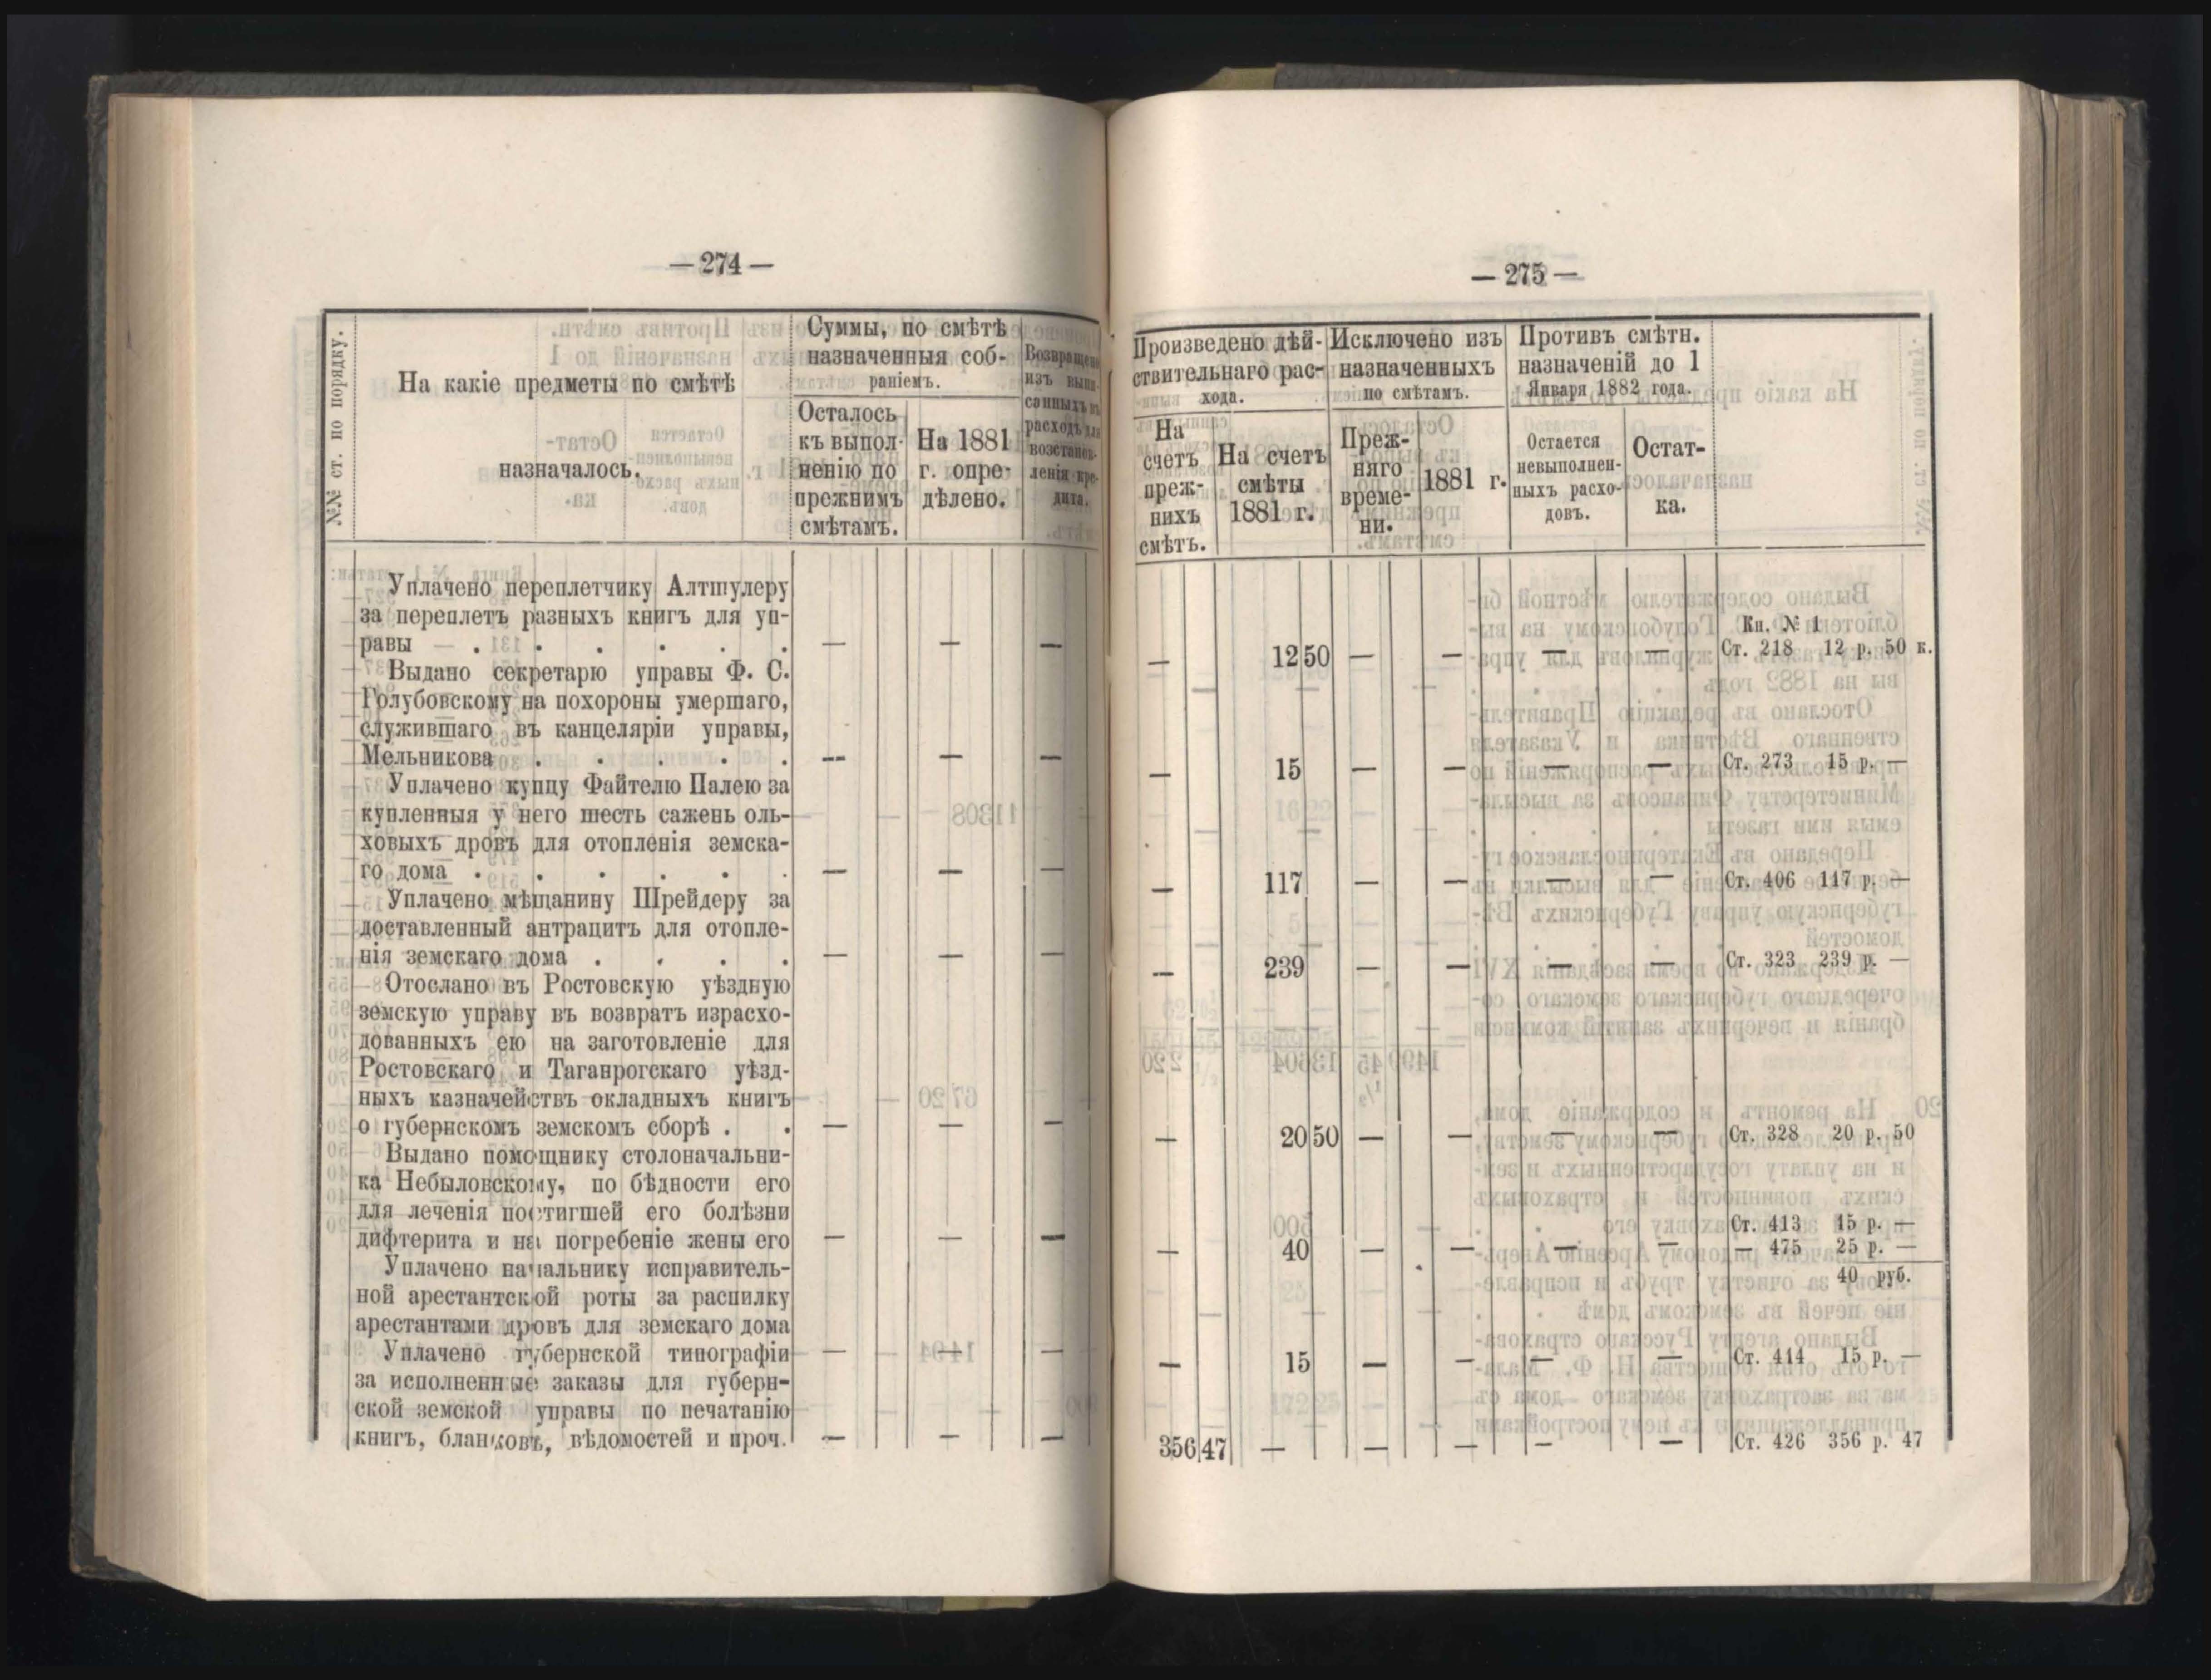 — 274 —
№№ ст. по порядку.
На какіе предметы по смѣтѣ
назначалось.
Суммы, по смѣтѣ
назначенныя соб-
раніемъ.
Осталось
къ выпол-
ненію по
прежнимъ
смѣтамъ.
На 1881
г. опре-
дѣлено.
Возвращено
изъ выпи-
санныхъ въ
расходъ для
возстанов-
ленія кре-
дита.
Уплачено переплетчику Алтшулеру
за переплетъ разныхъ книгъ для уп-
равы . . . . . . — — —
Выдано секретарю управы Ф. С.
Голубовскому на похороны умершаго,
служившаго въ канцеляріи управы,
Мельникова . . . . . — — —
Уплачено купцу Файтелю Палею за
купленныя у него шесть сажень оль-
ховыхъ дровъ для отопленія земска-
го дома . . . . . . — — —
Уплачено мѣщанину Шрейдеру за
доставленный антрацитъ для отопле-
нія земскаго дома . . . . — — —
Отослано въ Ростовскую уѣздную
земскую управу въ возвратъ израсхо-
дованныхъ ею на заготовленіе для
Ростовскаго и Таганрогскаго уѣзд-
ныхъ казначействъ окладныхъ книгъ
о губернскомъ земскомъ сборѣ . . — — —
Выдано помощнику столоначальни-
ка Небыловскому, по бѣдности его
для леченія постигшей его болѣзни
дифтерита и на погребеніе жены его — — —
Уплачено начальнику исправитель-
ной арестантской роты за распилку
арестантами дровъ для земскаго дома
Уплачено губернской типографіи — — —
за исполненные заказы для губерн-
ской земской управы по печатанію
книгъ, бланковъ, вѣдомостей и проч. — — —
— 275 —
Произведено дѣй-
ствительнаго рас-
хода.
На
счетъ
преж-
нихъ
смѣтъ.
На счетъ
смѣты
1881 г.
Исключено изъ
назначенныхъ
по смѣтамъ.
Преж-
няго
време-
ни.
1881 г.
Противъ смѣтн.
назначеній до 1
Января 1882 года.
Остается
невыполнен-
ныхъ расхо-
довъ.
Остат-
ка.
Кн. № 1
— 12 50 — — — — Ст. 218 12 р. 50 к.
— 15 — — — — Ст. 273 15 р. —
— 117 — — — — Ст. 406 117 р. —
— 239 — — — — Ст. 323 239 р. —
— 20 50 — — — — Ст. 328 20 р. 50
Ст. 413 15 р. —
— 40 — — — — — 475 25 р. —
40 руб.
— 15 — — — — Ст. 414 15 р. —
356 47 — — — — — Ст. 426 356 р. 47